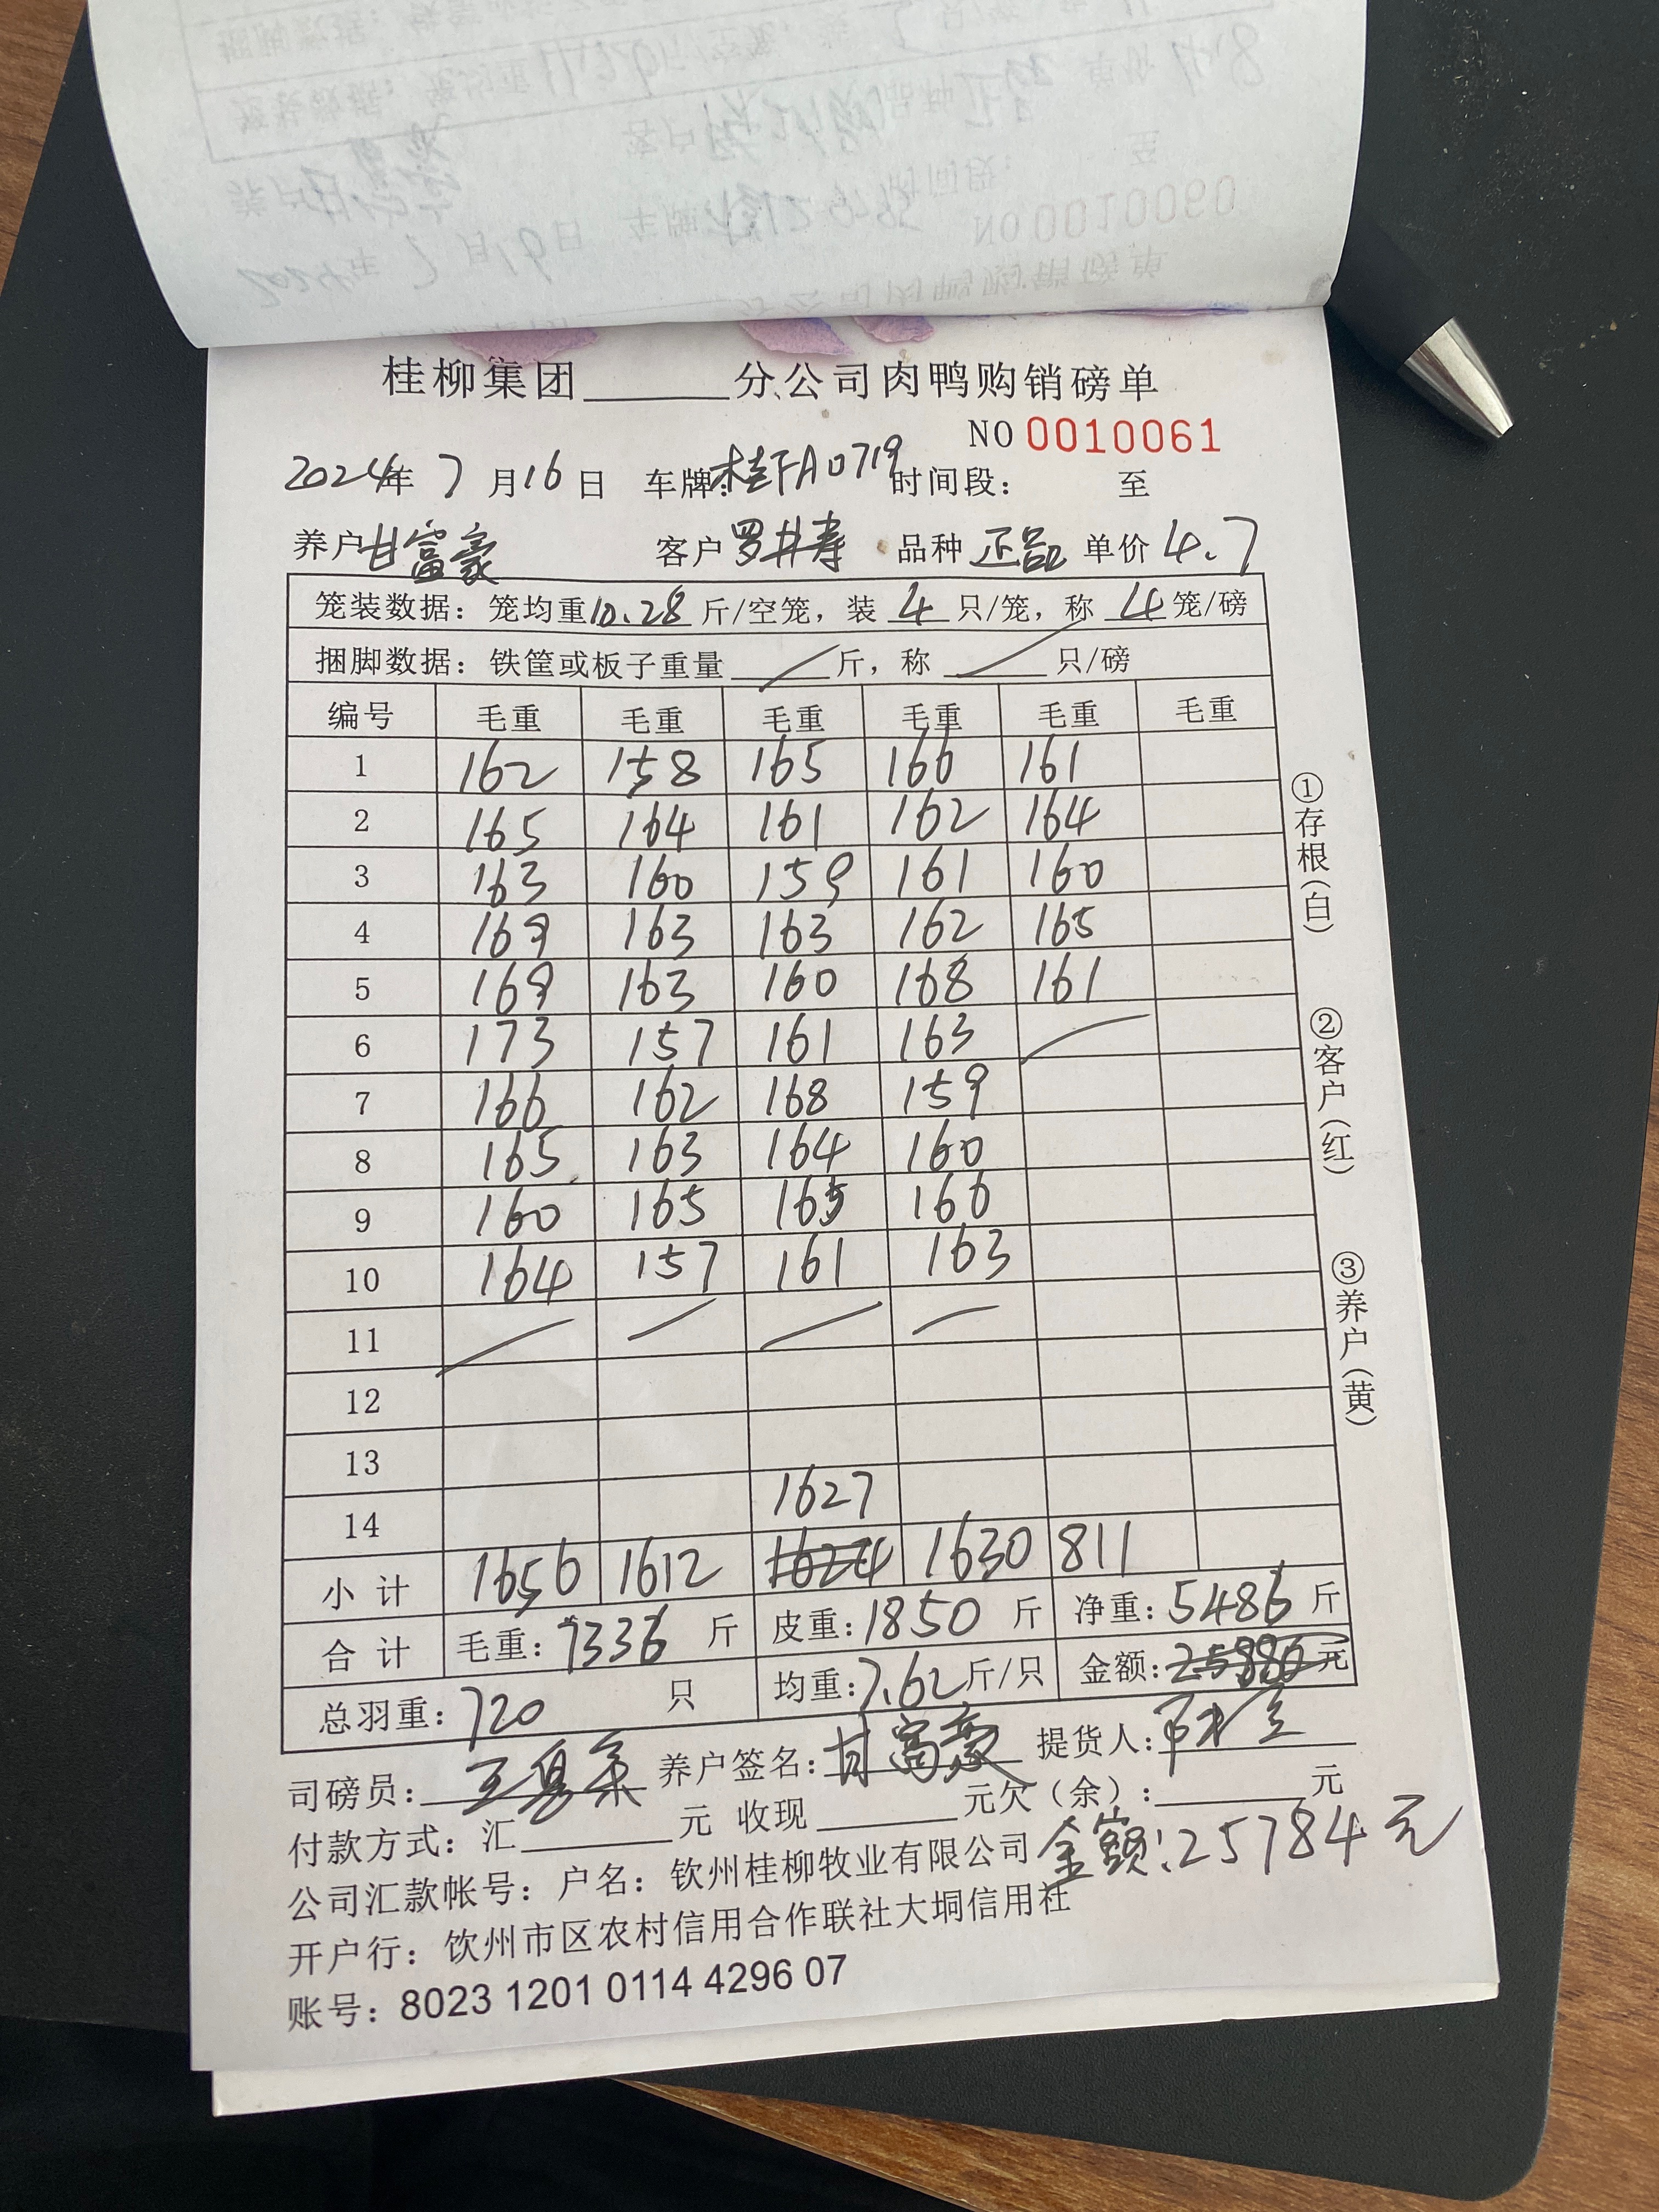 桂柳集团______分公司肉鸭购销磅单
NO 0010061
2024年 7月16日 车牌:桂FA0719 时间段: 至
养户 甘富豪 客户 罗井寿 品种 正品 单价 4.7
笼装数据: 笼均重10.28斤/空笼, 装 4 只/笼, 称 4 笼/磅
捆脚数据: 铁筐或板子重量 / 斤, 称 / 只/磅
编号 毛重 毛重 毛重 毛重 毛重 毛重
1 162 158 165 166 161
2 165 164 161 162 164
3 163 160 159 161 160
4 169 163 163 162 165
5 169 163 160 168 161
6 173 157 161 163 /
7 166 162 168 159
8 165 163 164 160
9 160 165 165 166
10 164 157 161 163
11 / / / /
12
13
14 1627
小计 1656 1612 1624 1630 811
合计 毛重: 7336 斤 皮重: 1850 斤 净重: 5486 斤
总羽重: 720 只 均重: 7.62斤/只 金额: 25886元
司磅员: 养户签名: 甘富豪 提货人:
付款方式: 汇______元 收现______元欠(余): ______元
公司汇款帐号: 户名: 钦州桂柳牧业有限公司 金额:25784元
开户行: 钦州市区农村信用合作联社大垌信用社
账号: 8023 1201 0114 4296 07
①存根(白)
②客户(红)
③养户(黄)